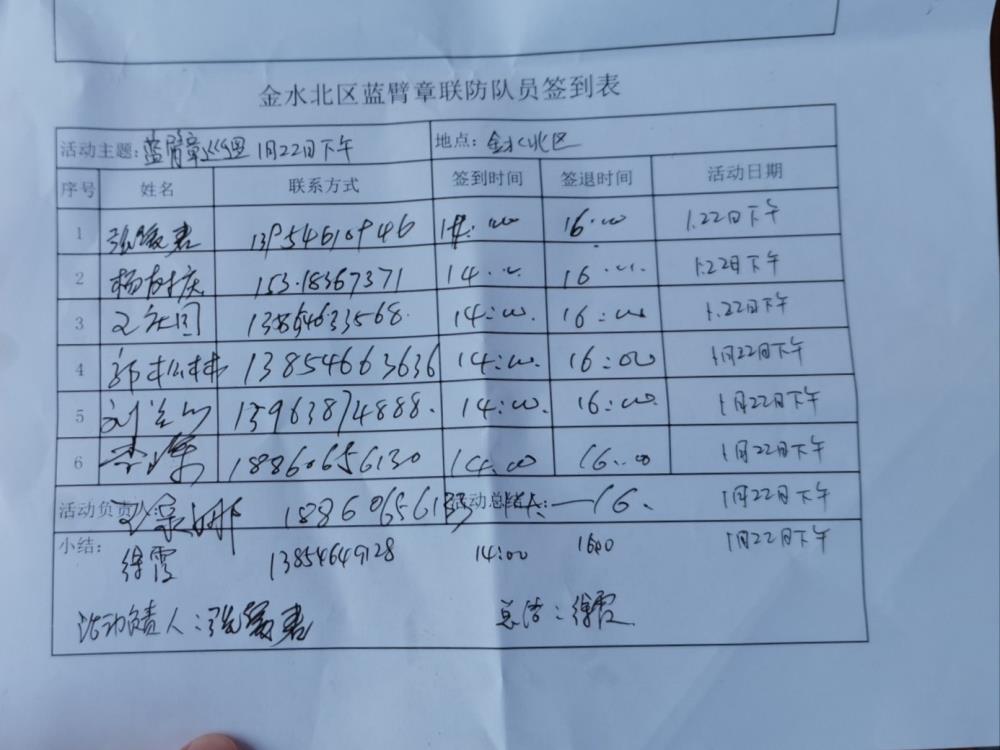 金水北区蓝臂章联防队员签到表
活动主题:蓝臂章巡逻 1月22日下午 地点:金水北区
序号 姓名 联系方式 签到时间 签退时间 活动日期
1 13954610946 14:00 16:00 1.22日下午
2 杨树庆 15318367371 14:00 16:00 1.22日下午
3 13864633568. 14:00. 16:00 1.22日下午
4 郭松林 13854663636 14:00 16:00 1月22日下午
5 13963874888. 14:00. 16:00 1月22日下午
6 18860656130 14:00 16:00 1月22日下午
活动负责人: 活动总结人: 16. 1月22日下午
小结:
徐霞 13854649128 14:00 1600 1月22日下午
活动负责人: 总结:徐霞